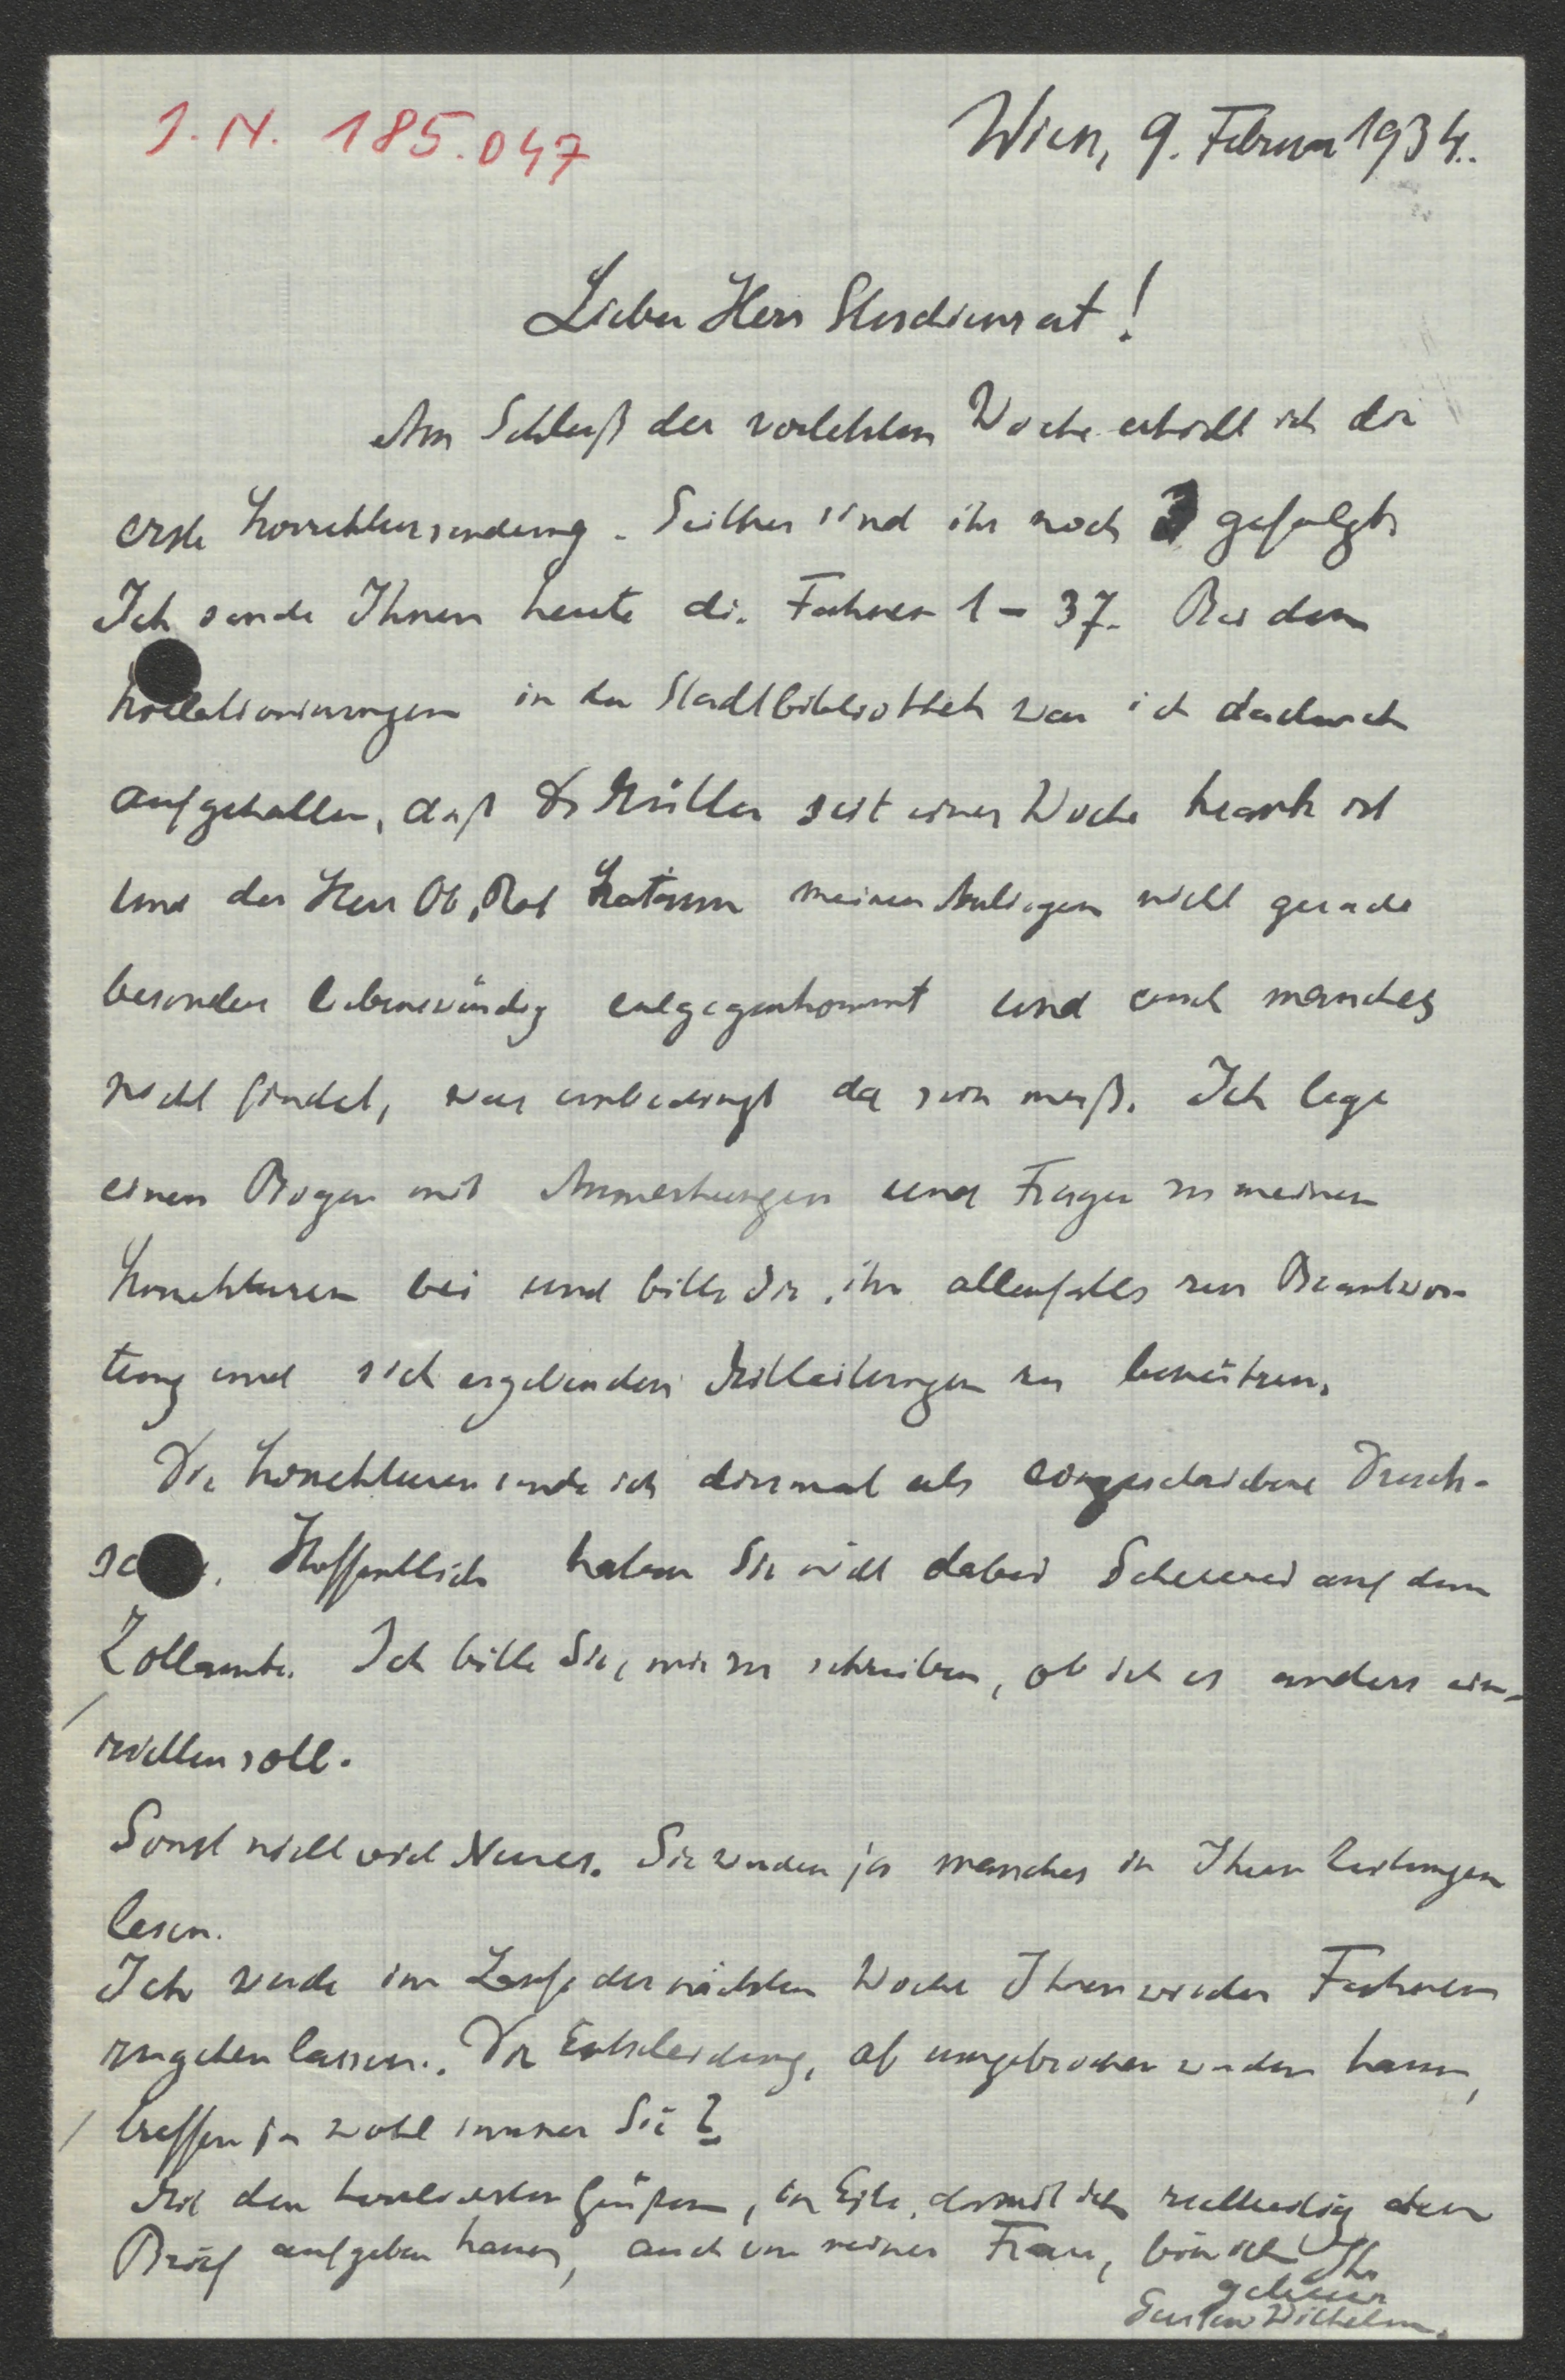 J. N. 185.047
Wien, 9. Februar 1934.
Lieber Herr Studienrat!
Am Schluß der vorletzten Woche erhielt ich die
erste Korrektursendung. Seither sind ihr noch 3 gefolgt.
Ich sende Ihnen heute die Fahnen 1–37. Bei den
Kollationierungen in der Stadtbibliothek war ich dadurch
aufgehalten, daß Dr Müller seit einer Woche krank ist
und der Herr Ob. Rat meinen Anliegen nicht gerade
besonders liebenswürdig entgegenkommt und auch manches
nicht findet, was unbedingt da sein muß. Ich lege
einen Bogen mit Anmerkungen und Fragen zu meinen
Korrekturen bei und bitte Sie, ihn allenfalls zur Beantwor-
tung und sich ergebenden Mitteilungen zu benützen.
Die Korrekturen sende ich diesmal als eingeschriebene Druck-
sache. Hoffentlich haben Sie nicht dabei Scherereien auf dem
Zollamte. Ich bitte Sie, mir zu schreiben, ob ich es anders ein-
richten soll.
Sonst nicht viel Neues. Sie werden ja manches in Ihren Zeitungen
lesen.
Ich werde im Laufe der nächsten Woche Ihnen wieder Fahnen
zugehen lassen. Die Entscheidung, ob umgebrochen werden kann,
treffen ja wohl immer Sie?
Mit den herzlichsten Grüßen, in Eile, damit ich rechtzeitig den
Brief aufgeben kann, auch von meiner Frau, bin ich Ihr
getreuer
Gustav Wilhelm.